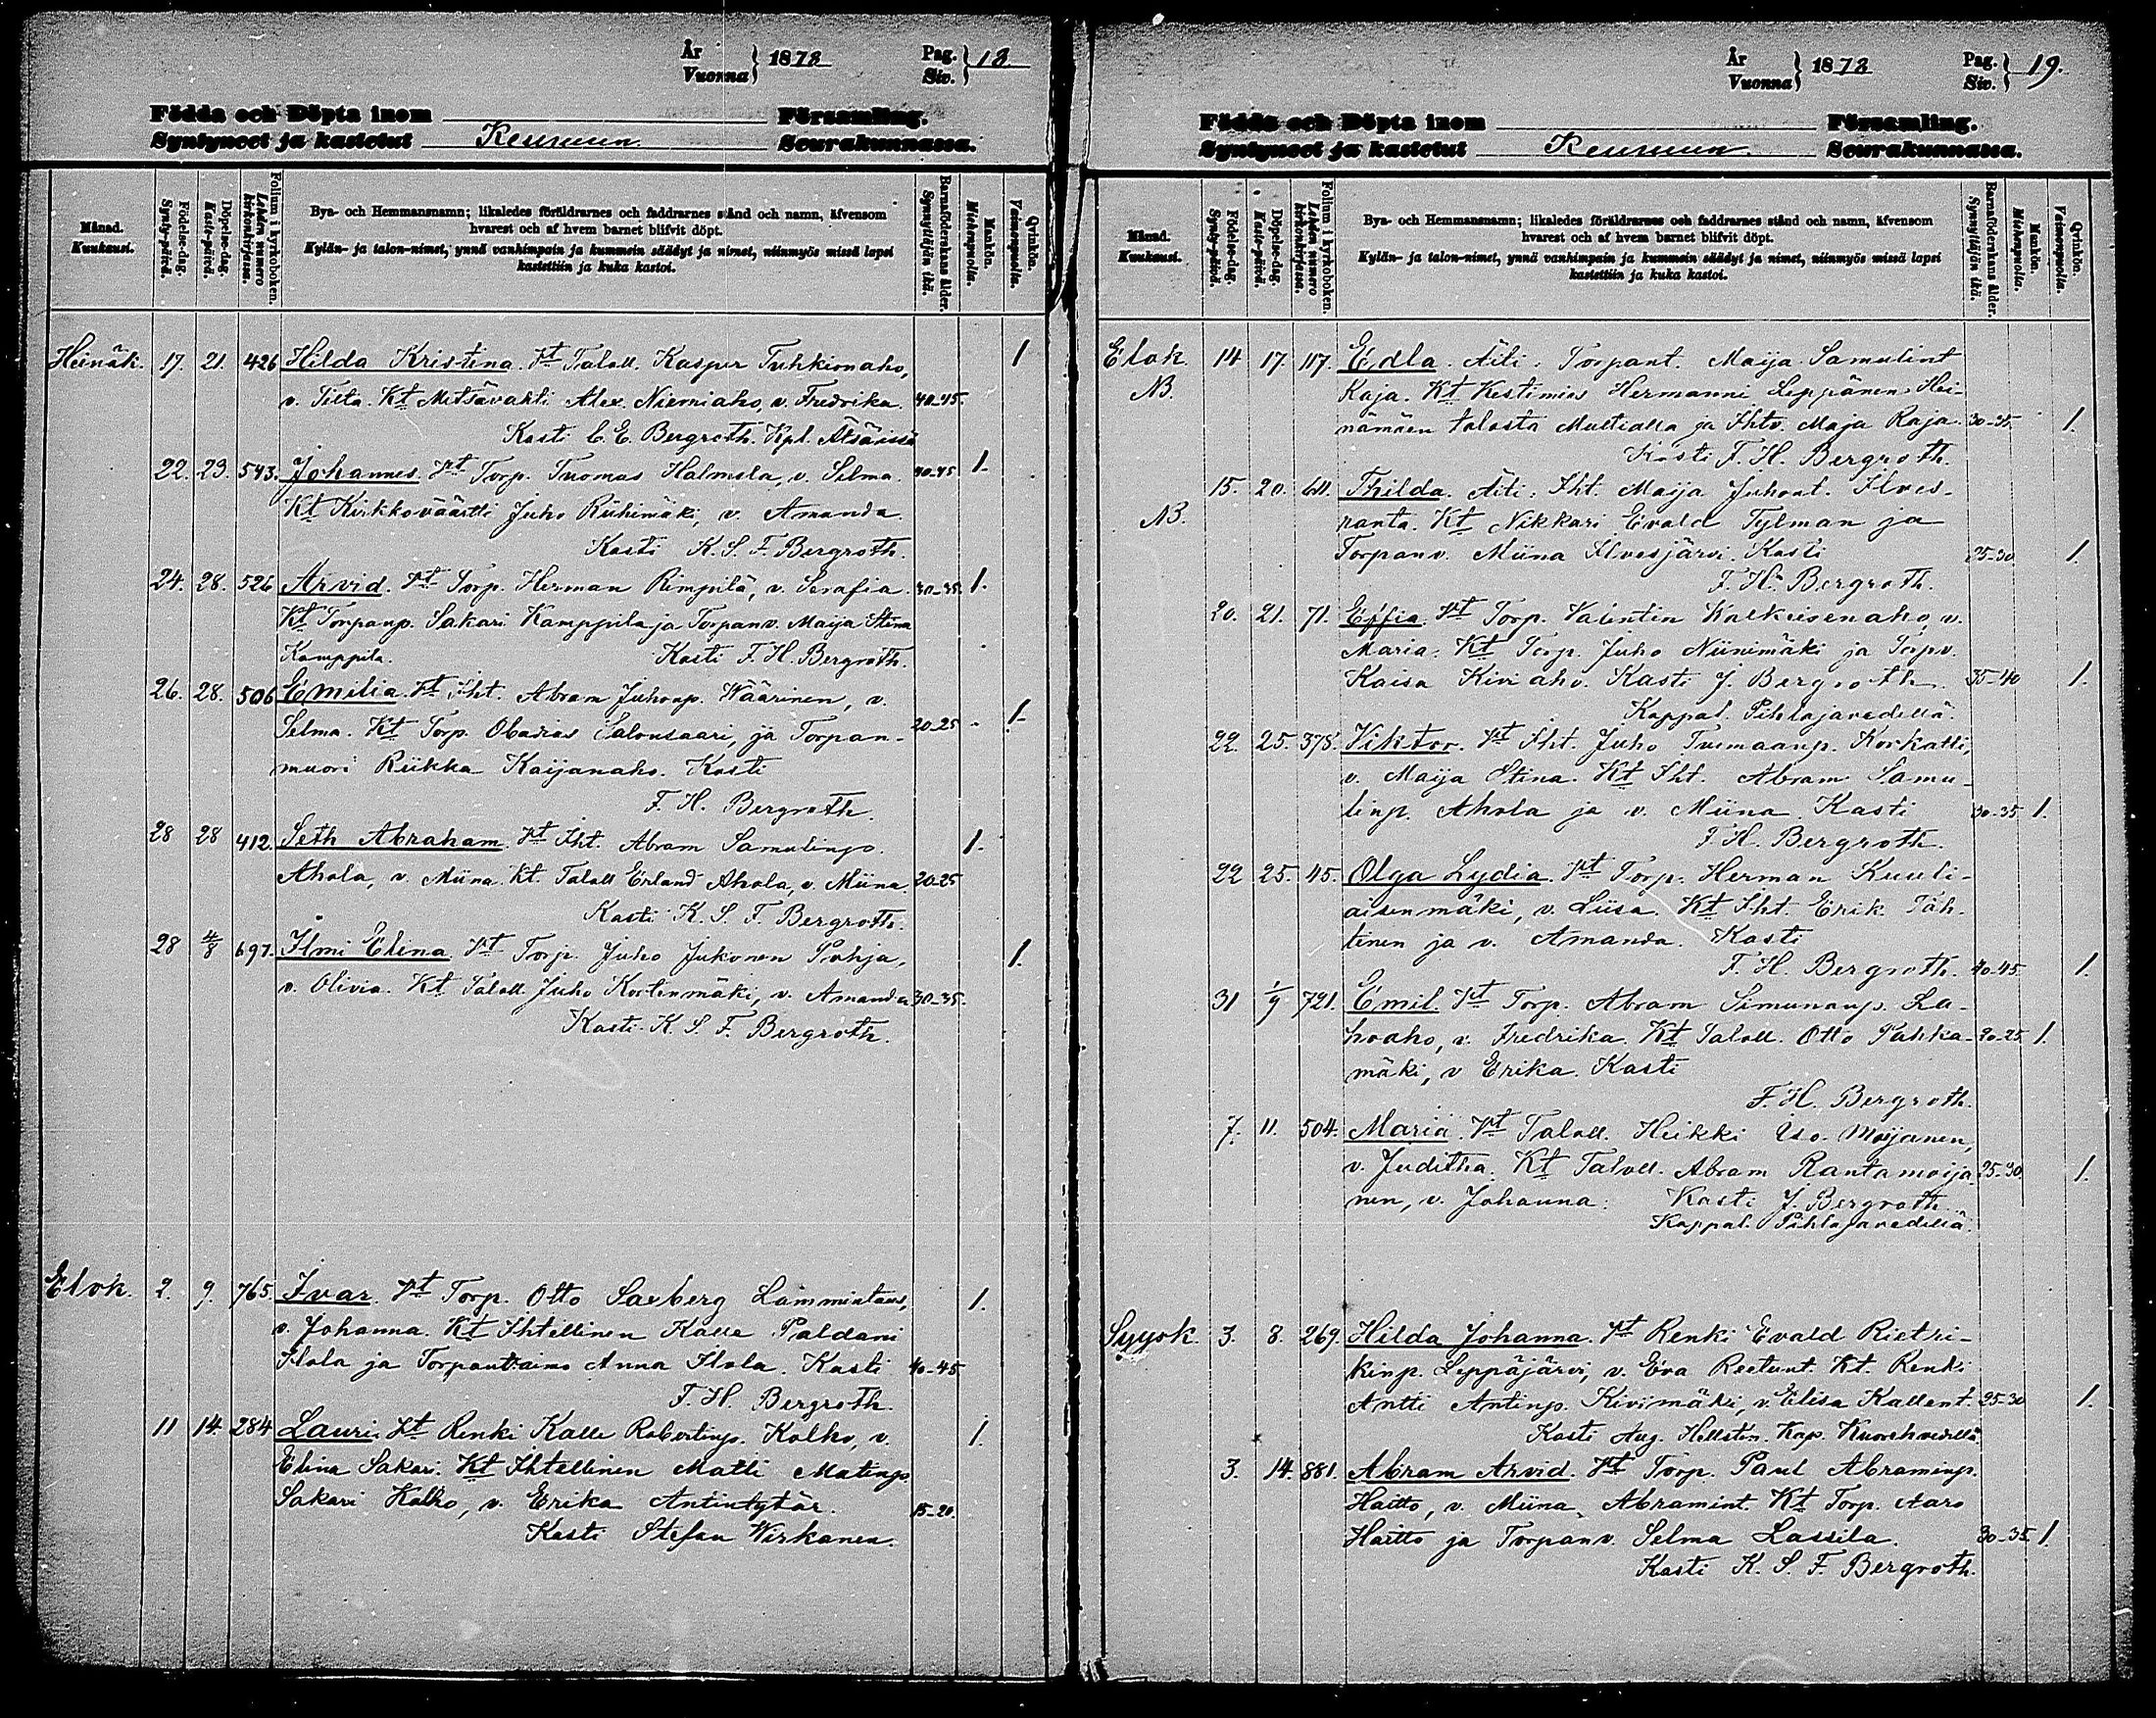 År
Vuonna } 1878
Pag.
Siv. } 18
Födda och Döpta inom Församling.
Syntyneet ja kastetut Keuruun Seurakunnassa.
Månad.
Kuukausi.
Födelse-dag.
Synty-päivä.
Döpelse-dag.
Kaste-päivä.
Folium i kyrkoboken.
Lehden numero kirkonkirjassa.
Bya- och Hemmansnamn; likaledes föräldrarnes och faddrarnes stånd och namn, äfvensom
hvarest och af hvem barnet blifvit döpt.
Kylän- ja talon-nimet, ynnä vanhimpain ja kummein säädyt ja nimet, niinmyös missä lapsi
kastettiin ja kuka kastoi.
Barnaföderskans ålder.
Synnyttäjän ikä.
Mankön.
Miehenpuolia.
Qvinkön.
Vaimonpuolia.
Heinäk. 17. 21. 426 Hilda Kristina. Vt Taloll. Kasper Tuhkionaho, 1
v. Tilta. Kt Metsävahti Alex. Niemiaho, v. Fredrika. 40-45.
Kasti C. E. Bergroth. Kpl. Ätsärissä
22. 23. 543. Johannes. Vt Torp. Tuomas Halmela, v. Selma. 40-45 1.
Kt Kirkkoväärtti Juho Riihimäki, v. Amanda.
Kasti K. S. F. Bergroth.
24. 28. 526 Arvid. Vt Torp. Herman Rimpilä, v. Serafia. 30-35. 1.
Kt Torpanp. Sakari Kamppila ja Torpanv. Maija Stina
Kamppila. Kasti F. H. Bergroth.
26. 28. 506 Emilia. Vt Iht. Abram Juhonp. Wäärinen, v.
Selma. Kt Torp. Obadias Salonsaari, ja Torpan- 20-25 1.
muori Riikka Kaijanaho. Kasti
F. H. Bergroth.
28 28 412. Seth Abraham. Vt Iht. Abram Samulinp. 1.
Ahola, v. Miina. Kt. Taloll Erland Ahola, v. Miina 20-25
Kasti K. S. F. Bergroth.
28 4/8 697. Ilmi Elina Vt Torp. Juho Jukonen Pohja, 1.
v. Olivia. Kt Taloll. Juho Kortenmäki, v. Amanda 30-35.
Kasti K. S. F. Bergroth.
Elok. 2. 9. 765. Ivar. Vt Torp. Otto Saxberg Lammintaus, 1.
v. Johanna. Kt Ihtellinen Kalle Paldani
Ilola ja Torpantaimo Anna Ilola. Kasti 40-45
F. H. Bergroth.
11 14. 284 Lauri. Vt Renki Kalle Robertinp. Kolho, v. 1.
Elina Sakari. Kt Ihtellinen Matti Matinp.
Sakari Kolho, v. Erika Antintytär. 15-20.
Kasti Stefan Wirkanen.
År
Vuonna } 1878
Pag.
Siv. } 19.
Födda och Döpta inom Församling.
Syntyneet ja kastetut Keuruun Seurakunnassa.
Månad.
Kuukausi.
Födelse-dag.
Synty-päivä.
Döpelse-dag.
Kaste-päivä.
Folium i kyrkoboken.
Lehden numero kirkonkirjassa.
Bya- och Hemmansnamn; likaledes föräldrarnes och faddrarnes stånd och namn, äfvensom
hvarest och af hvem barnet blifvit döpt.
Kylän- ja talon-nimet, ynnä vanhimpain ja kummein säädyt ja nimet, niinmyös missä lapsi
kastettiin ja kuka kastoi.
Barnaföderskans ålder.
Synnyttäjän ikä.
Mankön.
Miehenpuolia.
Qvinkön.
Vaimonpuolia.
Elok. 14 17. 117. Edla. Äiti: Torpant. Maija Samulint
NB. Raja. Kt Kestimies Hermanni Leppänen Hei-
nämäen talosta Multialla ja Ihtv. Maja Raja. 30-35 1.
Kasti F. H. Bergroth.
15. 20. 611. Thilda. Äiti: Iht. Maija Juhont. Ilves-
NB. ranta. Kt Nikkari Evald Tylman ja
Torpanv. Miina Ilvesjärvi. Kasti 25-30 1.
F. H. Bergroth.
20. 21. 71. Effia. Vt Torp. Valentin Walkeisenaho, v.
Maria. Kt Torp. Juho Niinimäki ja Torpv.
Kaisa Kiviaho. Kasti J. Bergroth. 35-40 1.
Kappal. Pihlajavedellä.
22. 25. 378. Viktor. Vt Iht. Juho Tuomaanp. Korkatti,
v. Maija Stina. Kt Iht. Abram Samu-
linp. Ahola ja v. Miina. Kasti 30-35 1.
F. H. Bergroth.
22 25. 45. Olga Lydia. Vt Torp. Herman Kuuli-
aisenmäki, v. Liisa. Kt Iht. Erik Täh-
tinen ja v. Amanda. Kasti
F. H. Bergroth. 40-45. 1.
31 1/9 721. Emil. Vt Torp. Abram Simunanp. La-
hoaho, v. Fredrika. Kt Taloll. Otto Pahka- 20-25 1.
mäki, v Erika. Kasti
F. H. Bergroth.
7. 11. 504. Maria. Vt Taloll. Heikki Iso-Moijanen,
v. Juditha. Kt Taloll. Abram Rantamoija- 25-30. 1.
nen, v. Johanna: Kasti J. Bergroth.
Kappal. Pihlajavedellä.
Syysk 3. 8. 269. Hilda Johanna. Vt Renki Evald Rietri-
kinp. Leppäjärvi, v. Eva Reetunt. Kt. Renki
Antti Antinp. Kivimäki, v. Elisa Kallent. 25-30 1.
Kasti Aug. Hellsten. Kap. Kuorehvedellä.
3. 14. 881. Abram Arvid. Vt Torp. Paul Abraminp.
Haitto, v. Miina Abramint. Kt Torp. Aaro
Haitto ja Torpanv. Selma Lassila. 30-35 1.
Kasti K. S. F. Bergroth.